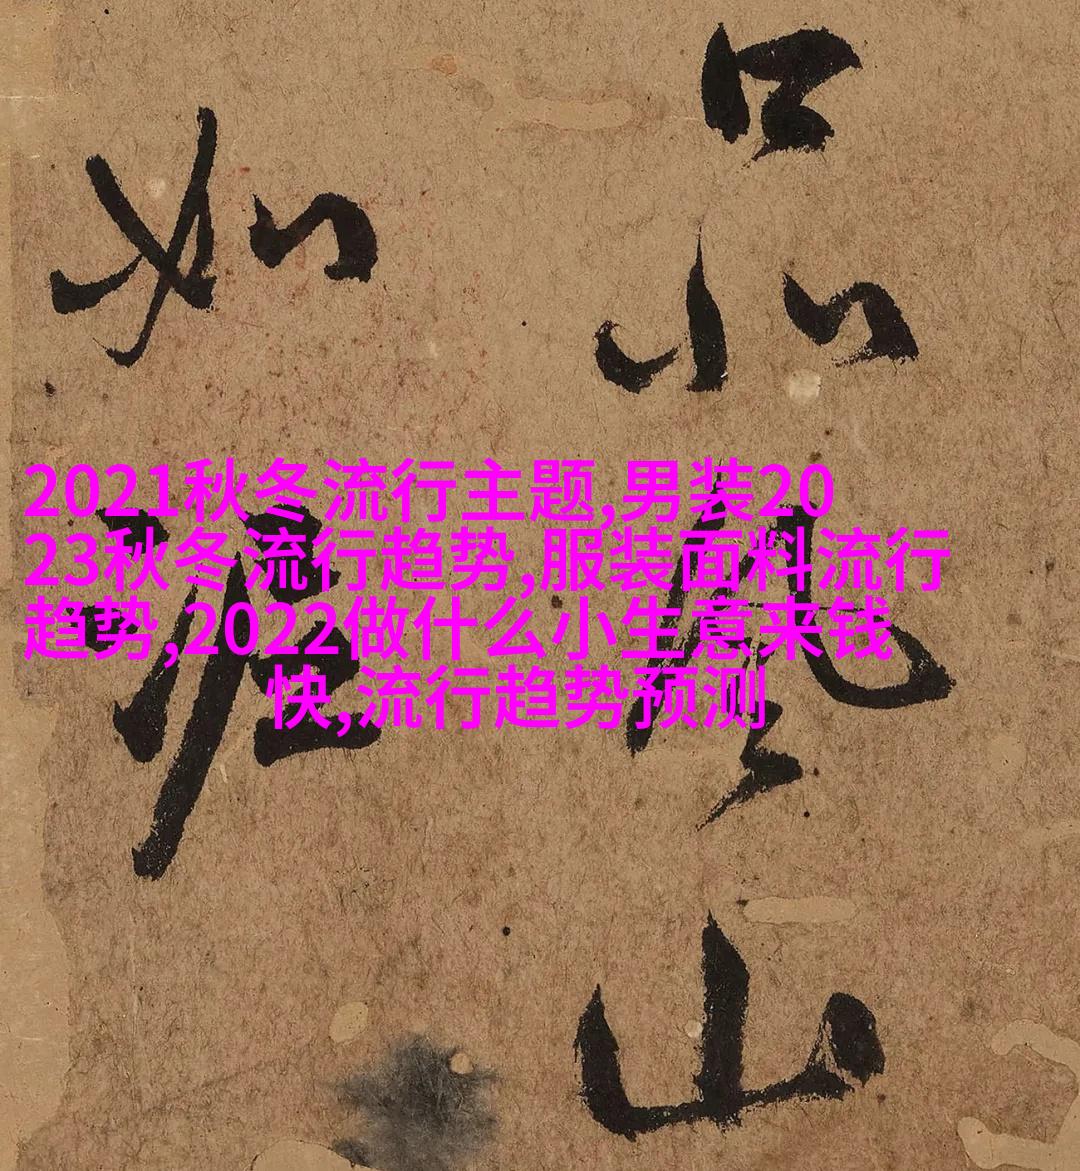 2021秋冬流行主题,男装20
23秋冬流行趋势,服装面料流行
趋势,2022做什么小生意来钱
快,流行趋势预测
山
如